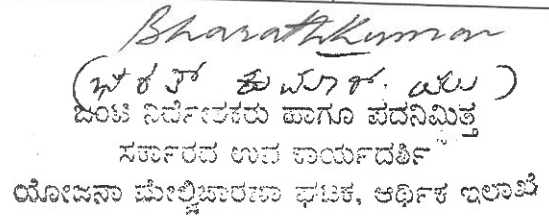 Bharathkumar
(ಭರತ್ ಕುಮಾರ್.
ಜಂಟಿ ನಿರ್ದೇಶಕರು ಹಾಗೂ ಪದನಿಮಿತ್ತ
ಸರ್ಕಾರದ ಉಪ ಕಾರ್ಯದರ್ಶಿ
ಯೋಜನಾ ಮೇಲ್ವಿಚಾರಣಾ ಘಟಕ, ಆರ್ಥಿಕ ಇಲಾಖೆ